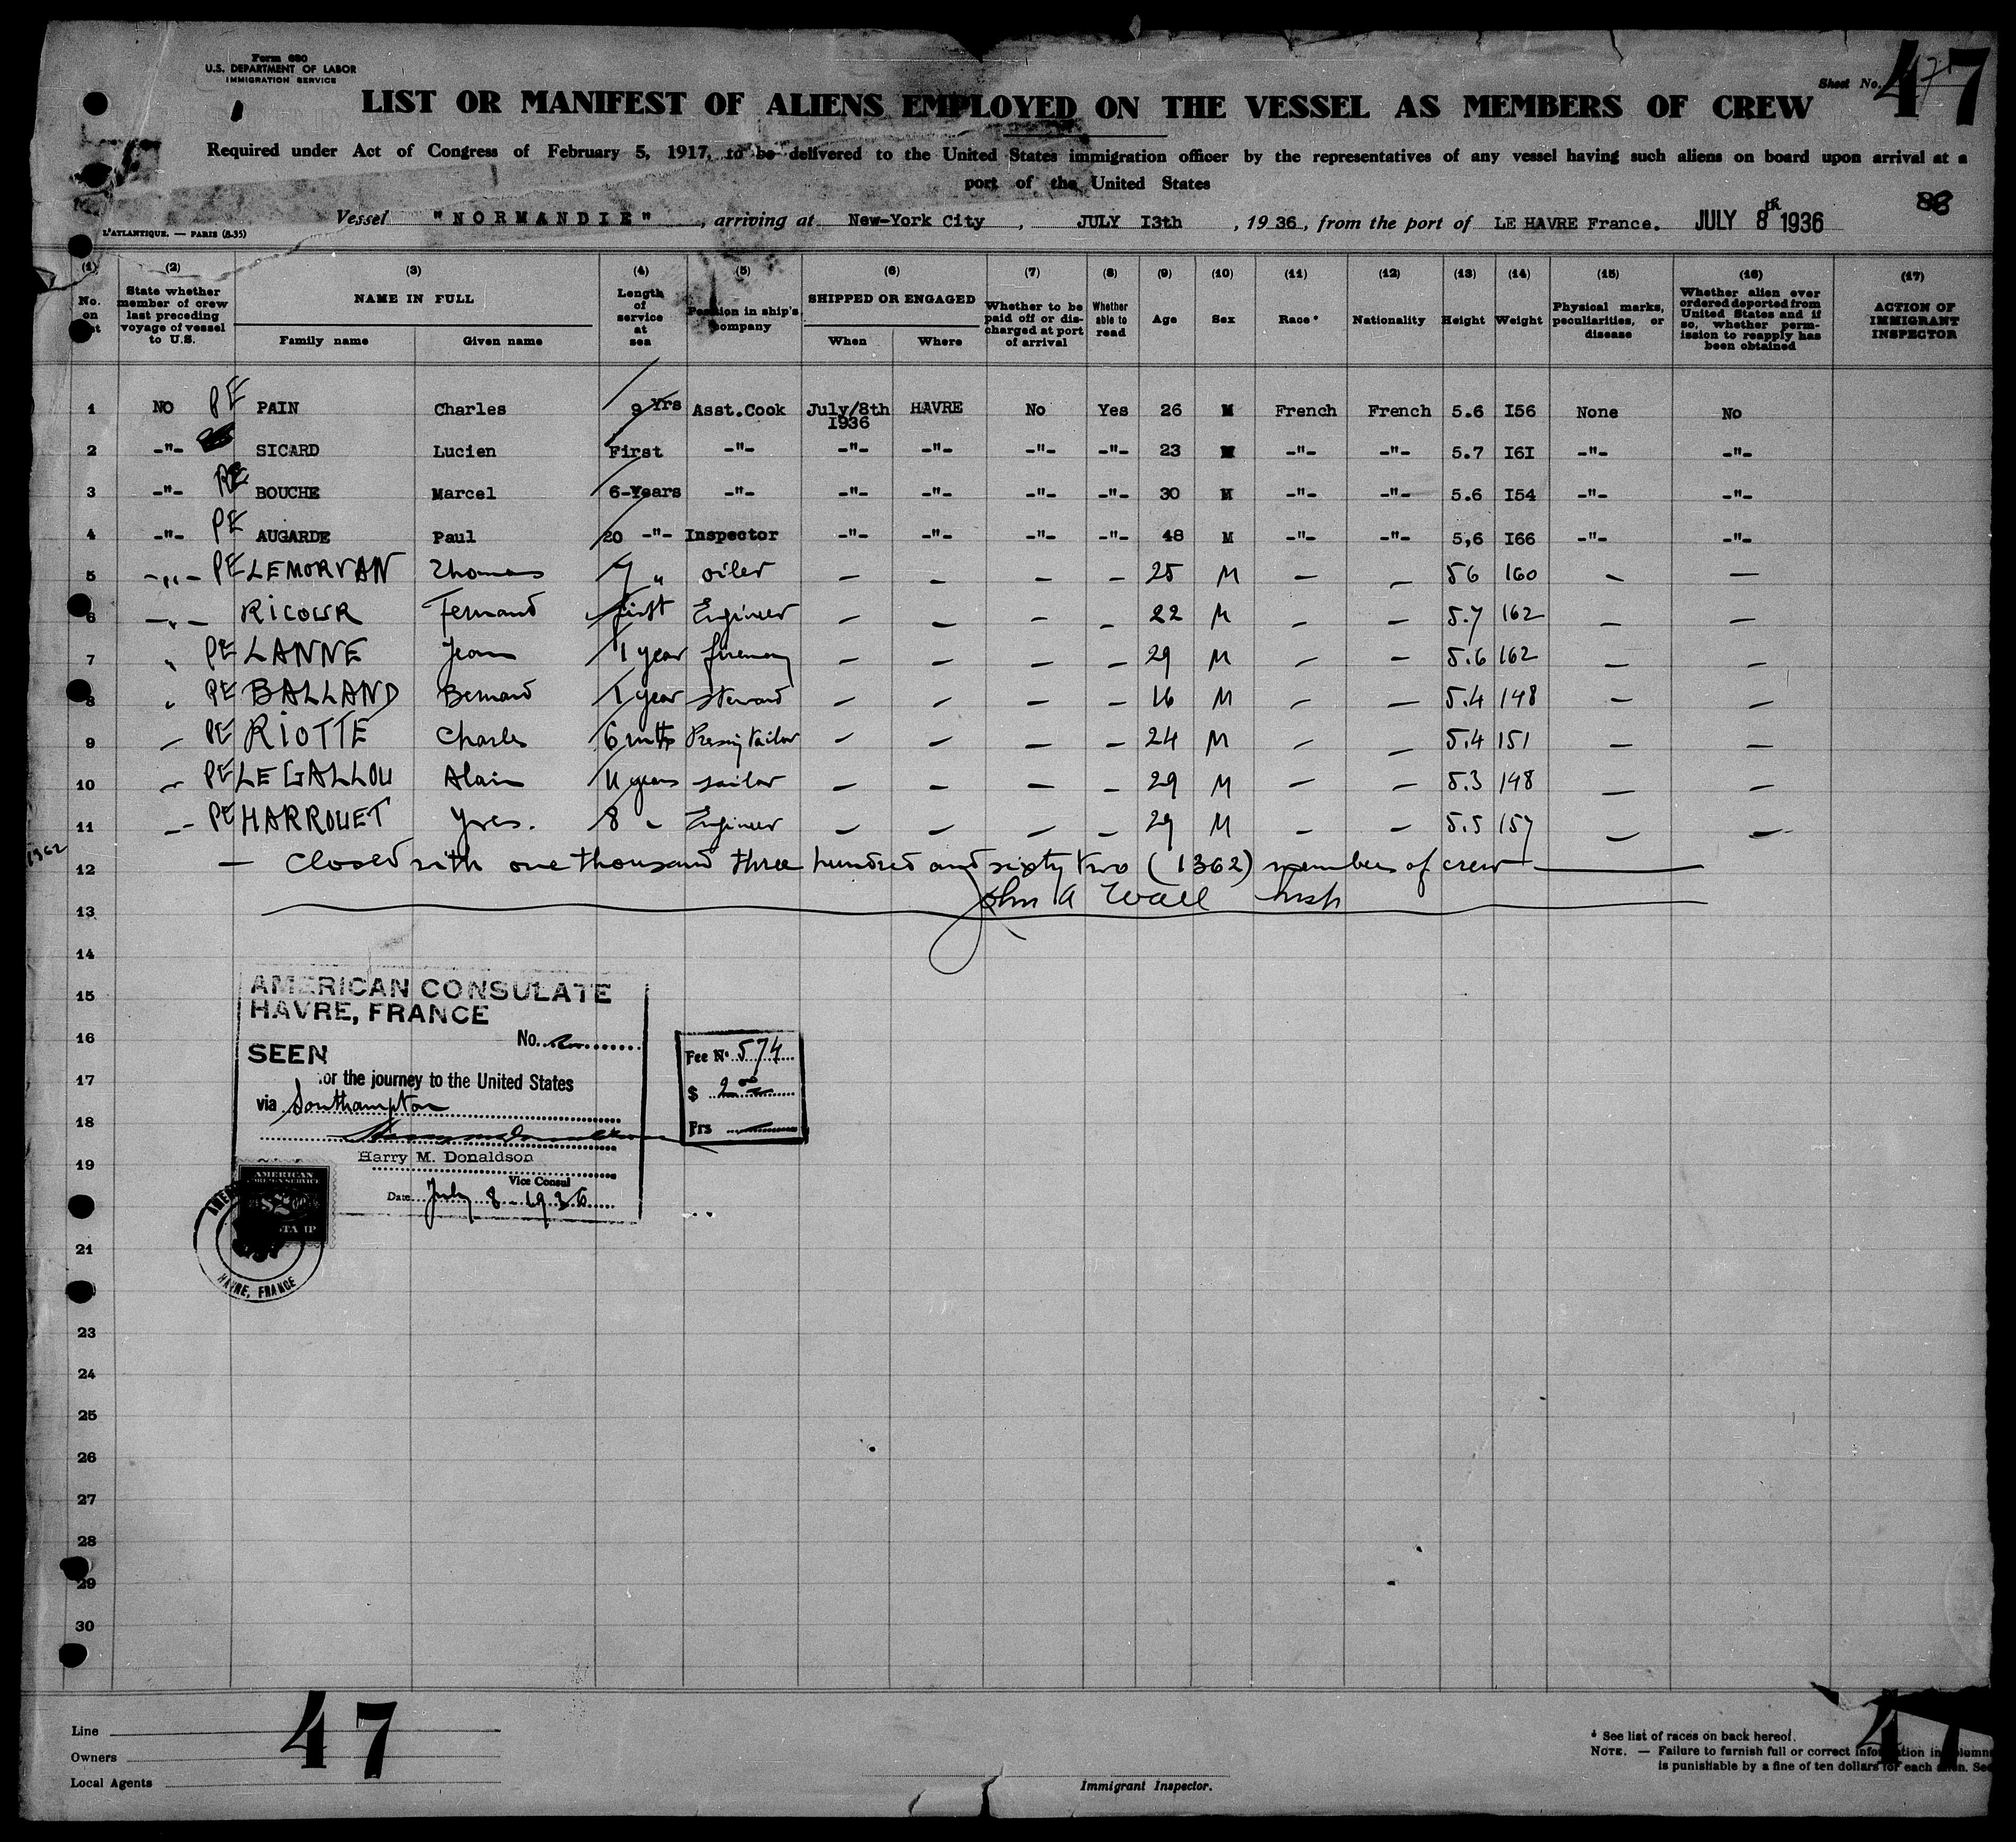 Form 680
U.S. DEPARTMENT OF LABOR
IMMIGRATION SERVICE
Sheet No. 47
47
LIST OR MANIFEST OF ALIENS EMPLOYED ON THE VESSEL AS MEMBERS OF CREW
Required under Act of Congress of February 5, 1917, to be delivered to the United States immigration officer by the representatives of any vessel having such aliens on board upon arrival at a
port of the United States
Vessel "NORMANDIE", arriving at New-York City, JULY I3th, 1936, from the port of LE HAVRE France. JULY 8th 1936
L'ATLANTIQUE. — PARIS (8-35)
(1) (2) (3) (4) (5) (6) (7) (8) (9) (10) (11) (12) (13) (14) (15) (16) (17)
No. on
State whether member of crew last preceding voyage of vessel to U.S.
NAME IN FULL
Family name Given name
Length of service at sea
Position in ship's company
SHIPPED OR ENGAGED
When Where
Whether to be paid off or discharged at port of arrival
Whether able to read
Age Sex Race* Nationality Height Weight
Physical marks, peculiarities, or disease
Whether alien ever ordered deported from United States and if so, whether permission to reapply has been obtained
ACTION OF IMMIGRANT INSPECTOR
1 NO PE PAIN Charles 9 Yrs Asst.Cook July/8th 1936 HAVRE No Yes 26 M French French 5.6 I56 None No
2 -"- SICARD Lucien First -"- -"- -"- -"- -"- 23 M -"- -"- 5.7 I6I -"- -"-
3 -"- PE BOUCHE Marcel 6-Years -"- -"- -"- -"- -"- 30 M -"- -"- 5.6 I54 -"- -"-
4 -"- PE AUGARDE Paul 20 -"- Inspector -"- -"- -"- -"- 48 M -"- -"- 5,6 I66 -"- -"-
5 -"- PE LEMORVAN Thomas 7 " oiler — — — — 25 M — — 56 160 — —
6 -"- RICOUR Fernand first Engineer — — — — 22 M — — 5.7 162 — —
7 " PE LANNE Jean 1 year fireman — — — — 29 M — — 5.6 162 — —
8 " PE BALLAND Bernard 1 year steward — — — — 16 M — — 5.4 148 — —
9 — PE RIOTTE Charles 6 mths Pressing tailor — — — — 24 M — — 5.4 151 — —
10 — PE LE GALLOU Alain 11 years sailor — — — — 29 M — — 5.3 148 — —
11 — PE HARROUET Yves. 8 " Engineer — — — — 29 M — — 5.5 157 — —
1362
12 — Closed with one thousand three hundred and sixty two (1362) members of crew —
13 John A Wall Insp
14
15
16
17
18
19
21
23
24
25
26
27
28
29
30
AMERICAN CONSULATE
HAVRE, FRANCE
No.
SEEN
for the journey to the United States
via Southampton
Harry M. Donaldson
Vice Consul
Date July 8 - 1936
Fee No. 574
$ 2.00
Frs —
AMERICAN
FOREIGN SERVICE
$2
STAMP
HAVRE, FRANCE
47
47
Line
Owners
Local Agents
Immigrant Inspector.
* See list of races on back hereof.
NOTE. — Failure to furnish full or correct information in columns
is punishable by a fine of ten dollars for each alien. See